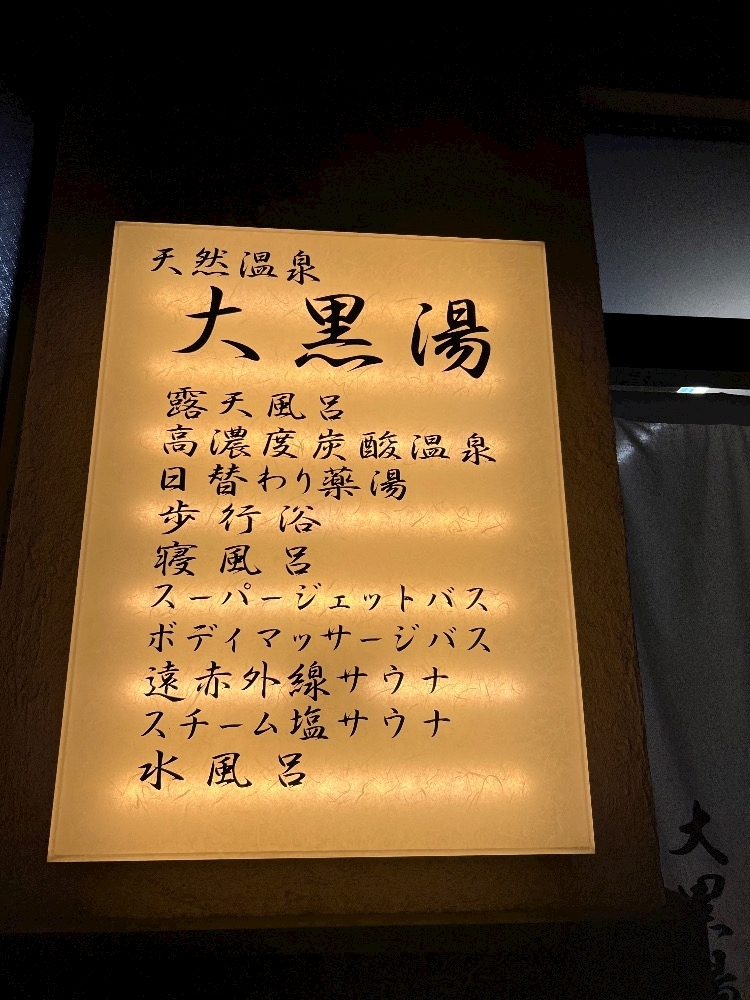 天然温泉
大黒湯
露天風呂
高濃度炭酸温泉
日替わり薬湯
歩行浴
寝風呂
スーパージェットバス
ボディマッサージバス
遠赤外線サウナ
スチーム塩サウナ
水風呂
大黒湯